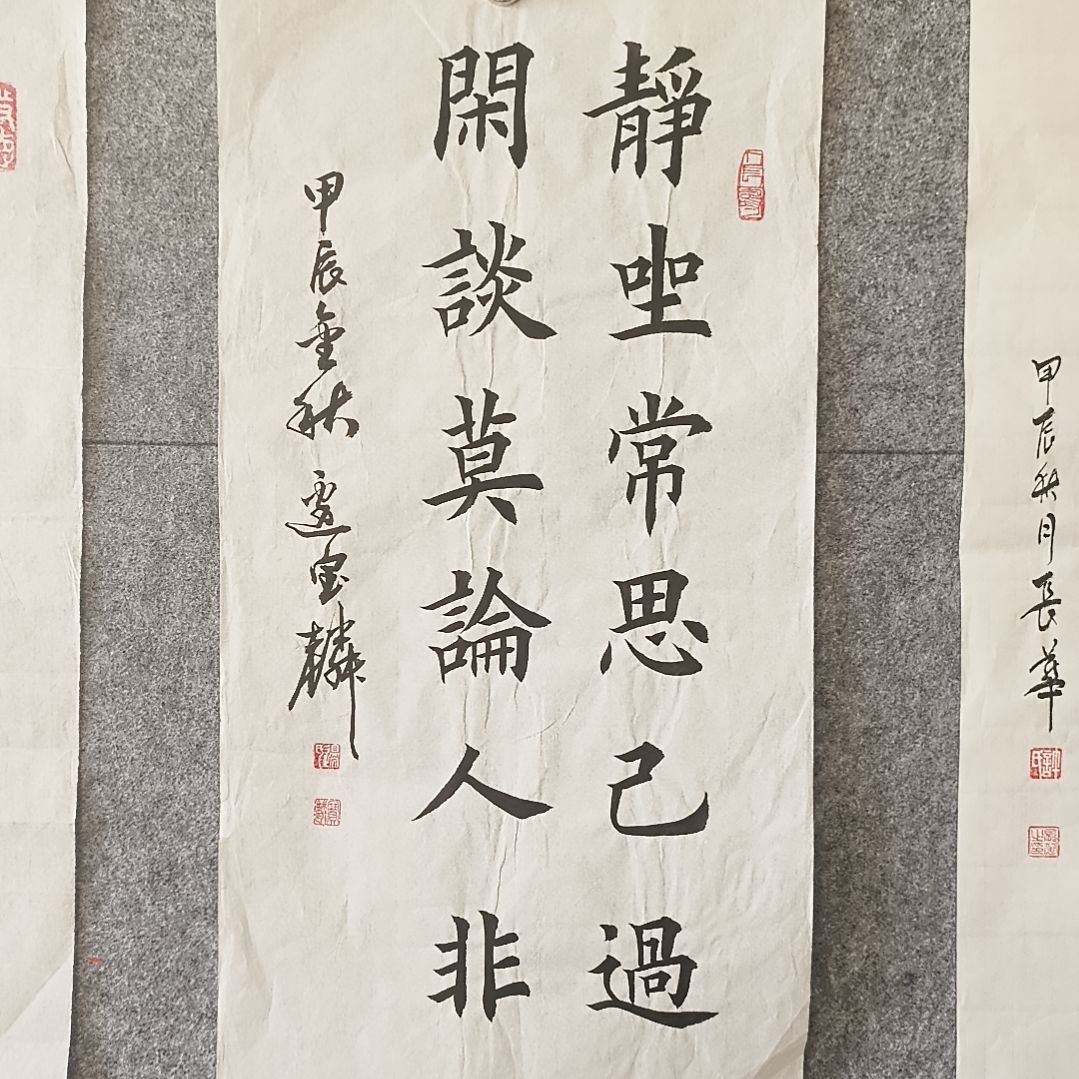 靜坐常思己過
閑談莫論人非
甲辰金秋 邊宝麟
甲辰秋月長華